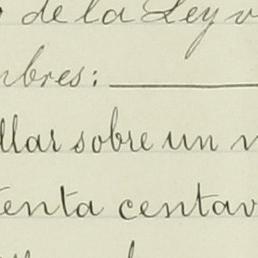 de la Ley v
mbres:
llar sobre un
tenta centav